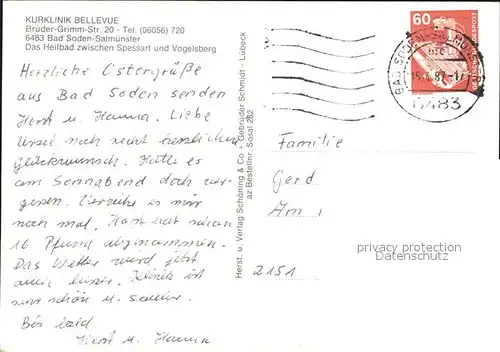 KURKLINIK BELLEVUE
Brüder-Grimm-Str. 20 - Tel. (06056) 720
6483 Bad Soden-Salmünster
Das Heilbad zwischen Spessart und Vogelsberg
Herzliche Ostergrüße
aus Bad Soden senden
Horst u. Hanna. Liebe
Ursel noch recht herzlichen
Glückwunsch. Hatte es
am Sonnabend doch ver-
gessen. Verzeihe es mir
noch mal. Horst hat schon
16 Pfund abgenommen.
Das Wetter wird jetzt
auch besser. Klinik ist
sehr schön u. sauber.
Bis bald
Horst u. Hanna
Herst. u. Verlag Schöning & Co + Gebrüder Schmidt - Lübeck
Bestellnr. Sosal 282
60
DEUTSCHE BUNDESPOST
BAD SODEN-SALMÜNSTER
6483
Familie
Gerd
Am
2151
privacy protection
Datenschutz